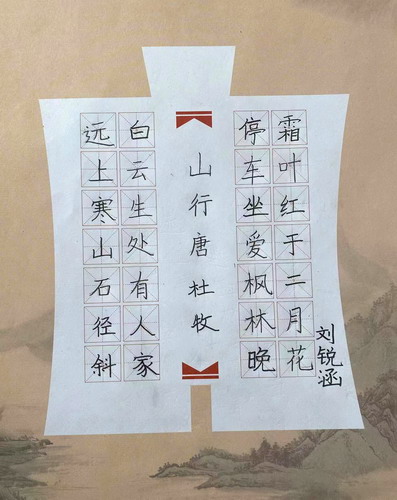 远上寒山石径斜
白云生处有人家
山行唐杜牧
停车坐爱枫林晚
霜叶红于二月花
刘锐涵